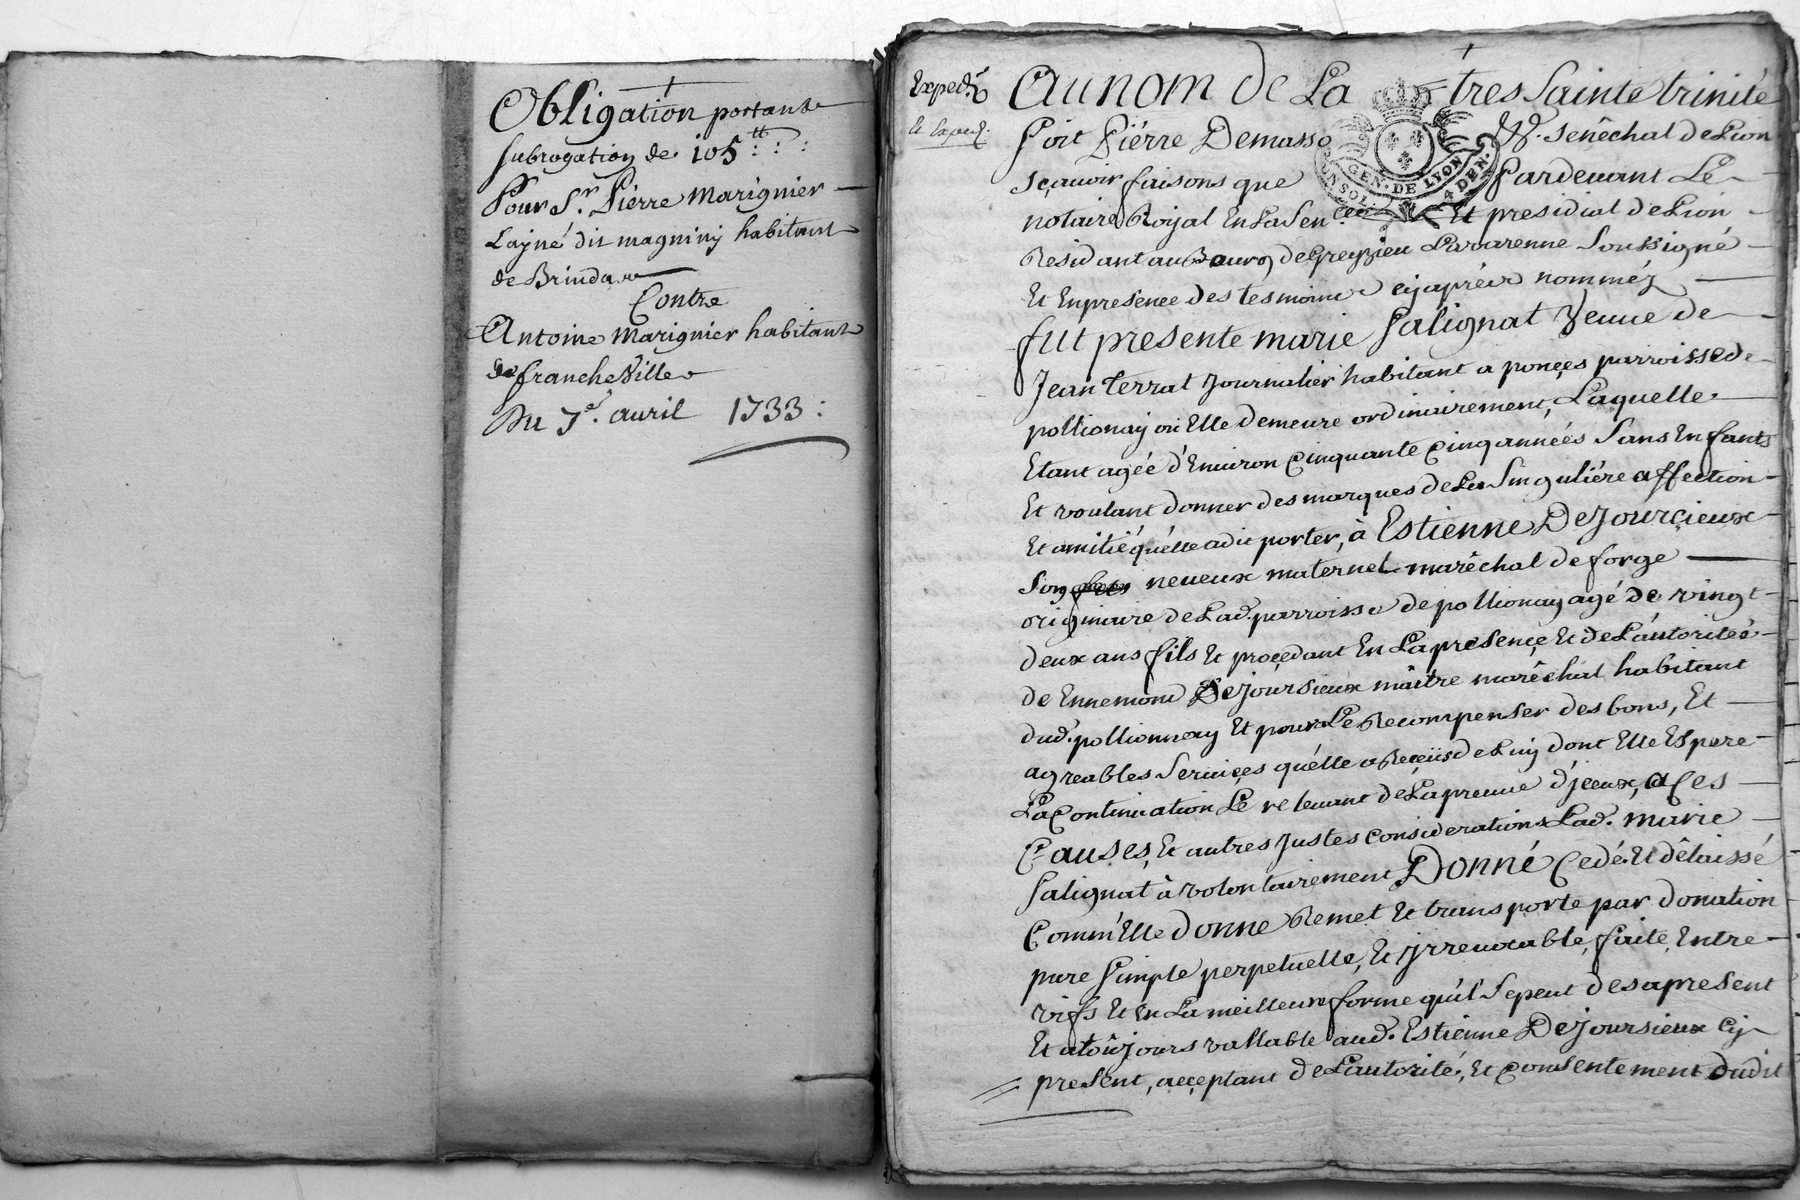 Obligation portante
subrogation de 105tt : : :
Pour Sr. Pierre Marignier
Layné dit magniny habitant
de Brindas
Contre
Antoine Marignier habitant
de francheville
Du 7e. avril 1733 :
Exped.
et Exped.
Au nom de La tres Sainte trinité
soit Pierre Demasso sénéchal de Lion
sçavoir faisons que Pardevant Le
notaire Royal En La Sen.cée Et presidial de Lion
Residant au Bourg de Greyzieu Lavarenne Soussigné
Et En presence des tesmoins cy aprés nomméz
fut presente marie Salignat Veuve de
Jean terrat Journalier habitant a ponçes parroisse de
pollionay où Elle demeure ordinairement, Laquelle
Etant agée d'Environ Cinquante Cinq années Sans Enfants
Et voulant donner des marques de La Singuliére affection
Et amitié qu'elle a dit porter, à Estienne DeJourcieux
Son neveux maternel marêchal de forge
originaire de Lad. parroisse de pollionay agé de vingt
deux ans fils Et proçedant En La presençe Et de L'autorité
de Ennemond DeJoursieux maître marêchal habitant
dud. pollionnay Et pour Le Recompenser des bons, Et
agreables Serviçes qu'elle a Reçeüs de Luy dont Elle Espere
La Continuation Le relevant de La preuve d'jceux, a Ces
Causes, Et autres Justes Considerations Lad. marie
Salignat à volontairement DONNÉ Cedé Et dêlaissé
Comm'Elle donne Remet Et transporte par donation
pure Simple perpetuelle, Et jrrevocable, faite, Entre
vifs Et En La meilleure forme qu'il Se peut des a present
Et a toûjours vallable aud. Estienne DeJoursieux Cy
present, acçeptant de L'autorité, Et Consentement dudit
GEN. DE LYON
4 DEN.